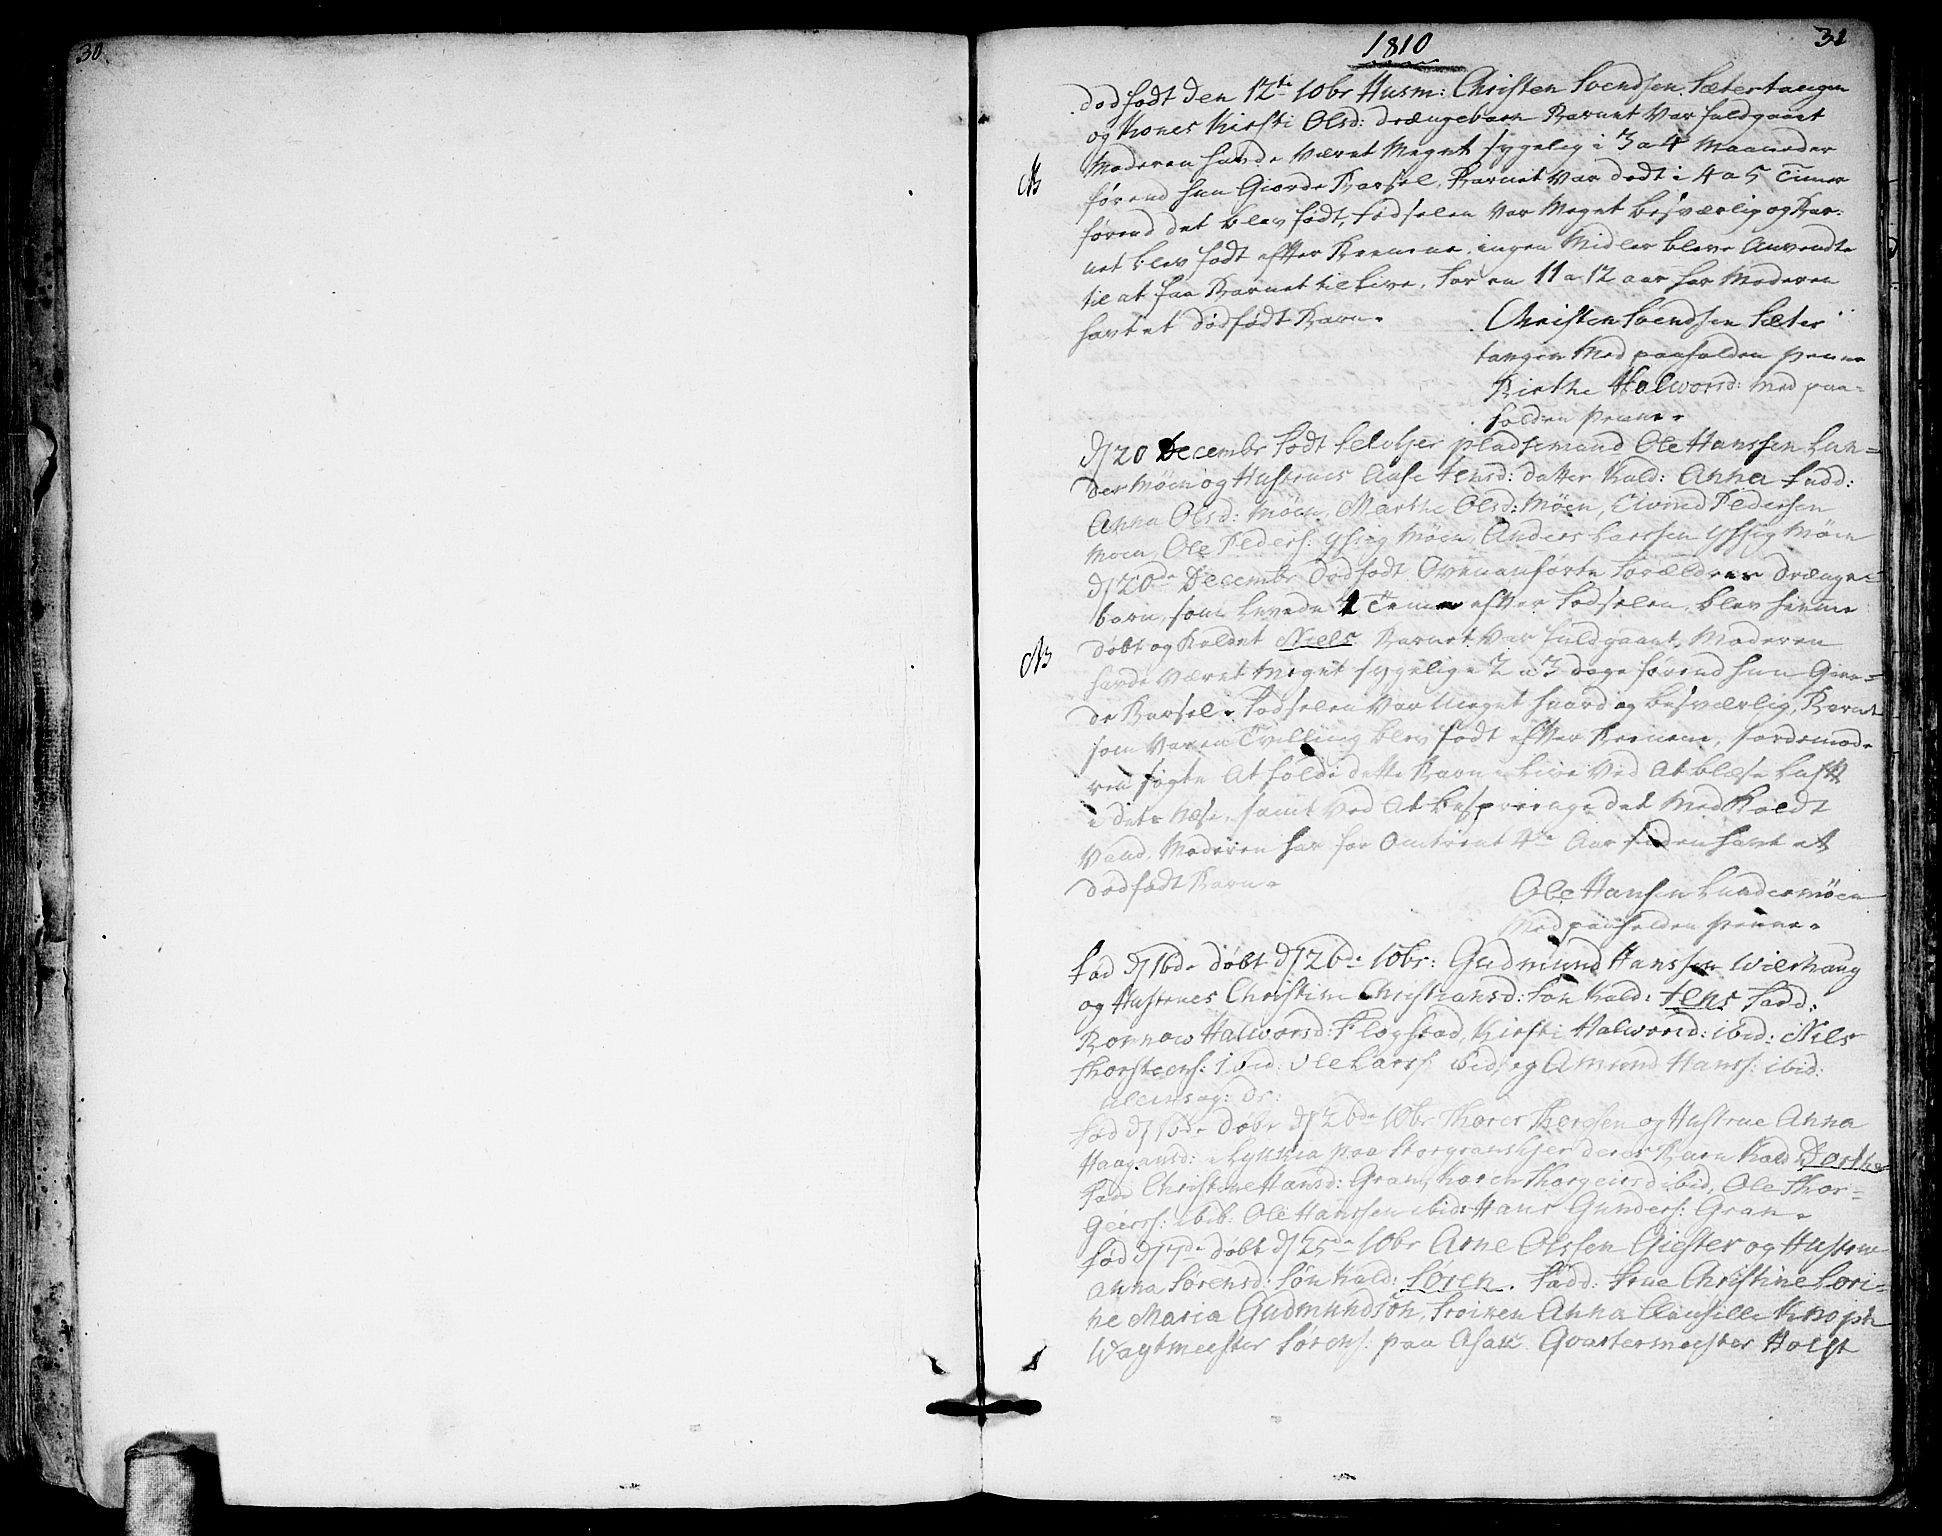 30.
1810
31
dødfødt den 12te 10br Husm: Christen Svendsen Sætertangen
og Kones Kirsti Olsd: drængebarn Barnet var fuldgaaet
Moderen havde været Meget sygelig i 3 a 4 Maaneder
NB
førend hun Giorde Barsel, Barnet var dødt i 4 a 5 Timer
førend det blev født, fødselen var Meget besværlig og Bar:
net blev født efter Benene, ingen Midler bleve Anvendte
til at faa Barnet til Live. For en 11 a 12 aar har Moderen
havt et dødfødt Barn.
Christen Svendsen Sæter
tangen Med paaholden penne
Birthe Halvorsd: Med paa-
holden penne.
d 20 Decembr født pladsemand Ole Hanssen Lun-
der Møen og Hustrues Aase Jensd: datter kald: Anna Fadd:
Anna Olsd: Møen, Marthe Olsd: Møen, Eivind Pedersen
Moen, Ole Peders: Møen, Anders Larssen Møen
d 20de Decembr dødfødt Ovenanførte Forældres drænge-
barn, som levede 1 Time efter Fødselen, blev hieme
døbt og kaldet Niels Barnet var fuldgaaet, Moderen
NB
havde været Meget sygelig i 2 a 3 dage førend hun Gior-
de Barsel. Fødselen var Meget haard og besværlig, Barnet
som var en Tvilling blev født efter Benene, Jordemode
ren søgte At holde dette Barn i Live ved At blæse Luft
i dets Næse, samt ved At besprenge det Med Koldt
Vand, Moderen har for Omtrent 4re Aar siden havt et
dødfødt Barn.
Ole Hansen Lundermöen
Med paaholden penne.
Fød d 16de døbt d 26de 10br: Gudmund Hanssen Wilshaug
og Hustrues Christine Christiansd: Søn kald: Jens Fadd:
Halvorsd: Flogstad, Kirsti Halvorsd: ibid: Niels
Thorsteens: ibid: Ole Larss: ibid, og Amund Hanss: ibid:
Ullensag: Dr:
Fød d 16de døbt d 26de 10br Thorer Thorersen og Hustrue Anna
Haagensd: i Lykkia paa Storgranskjer deres Barn kald Dorthe
Fadd Christine Hansd: Gran, Karen Thorgeirsd ibid, Ole Thor-
geirss: ibid: Ole Hanssen ibid: Hans Gunders: Gran.
Fød d 7de døbt d 25de 10br Arne Olssen Giester og Hustrue
Anna Sørensd: Søn kald: Søren. Fadd: Frue Christine Lovi-
ne Maria Gudmundson, Frøiken Anna Knoph
Wagtmeester Sørens: paa Asak Qvartermeester Holst